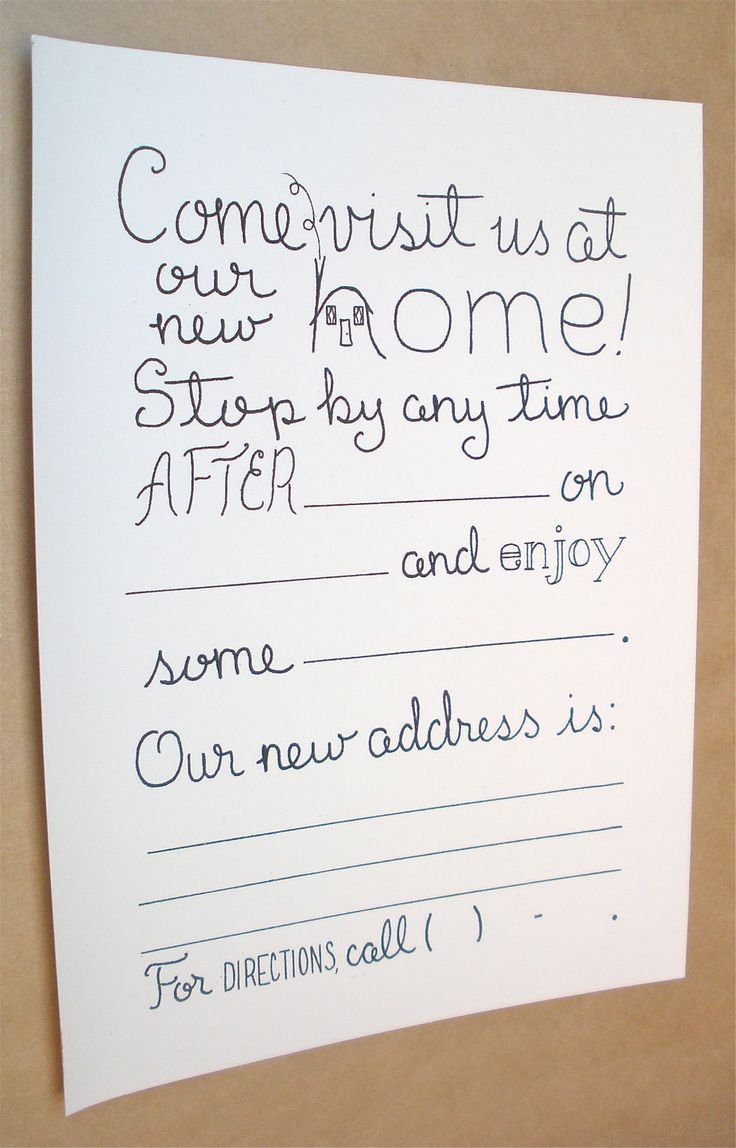 Come visit us at
our
new home!
Stop by any time
AFTER __________ on
__________ and enjoy
some __________.
Our new address is:
For DIRECTIONS, call (   )   -   .